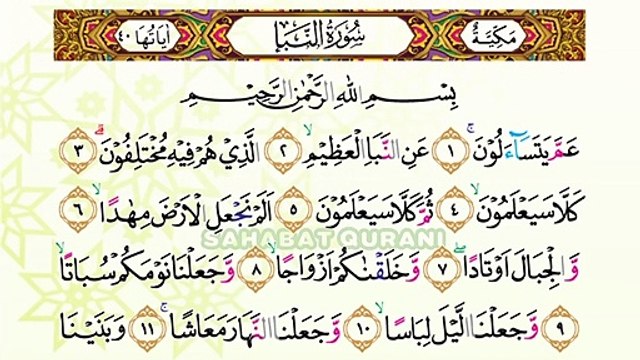 مَكِيَّةٌ سُوْرَةُ النَّبَإِ اٰيَاتُهَا ٤٠
بِسْمِ اللهِ الرَّحْمٰنِ الرَّحِيْمِ
عَمَّ يَتَسَآءَلُوْنَۚ ١ عَنِ النَّبَاِ الْعَظِيْمِۙ ٢ الَّذِيْ هُمْ فِيْهِ مُخْتَلِفُوْنَۗ ٣
كَلَّا سَيَعْلَمُوْنَۙ ٤ ثُمَّ كَلَّا سَيَعْلَمُوْنَ ٥ اَلَمْ نَجْعَلِ الْاَرْضَ مِهٰدًاۙ ٦
SAHABAT QURANI
وَّالْجِبَالَ اَوْتَادًاۖ ٧ وَّخَلَقْنٰكُمْ اَزْوَاجًاۙ ٨ وَّجَعَلْنَا نَوْمَكُمْ سُبَاتًاۙ
٩ وَّجَعَلْنَا الَّيْلَ لِبَاسًاۙ ١٠ وَّجَعَلْنَا النَّهَارَ مَعَاشًاۚ ١١ وَبَنَيْنَا